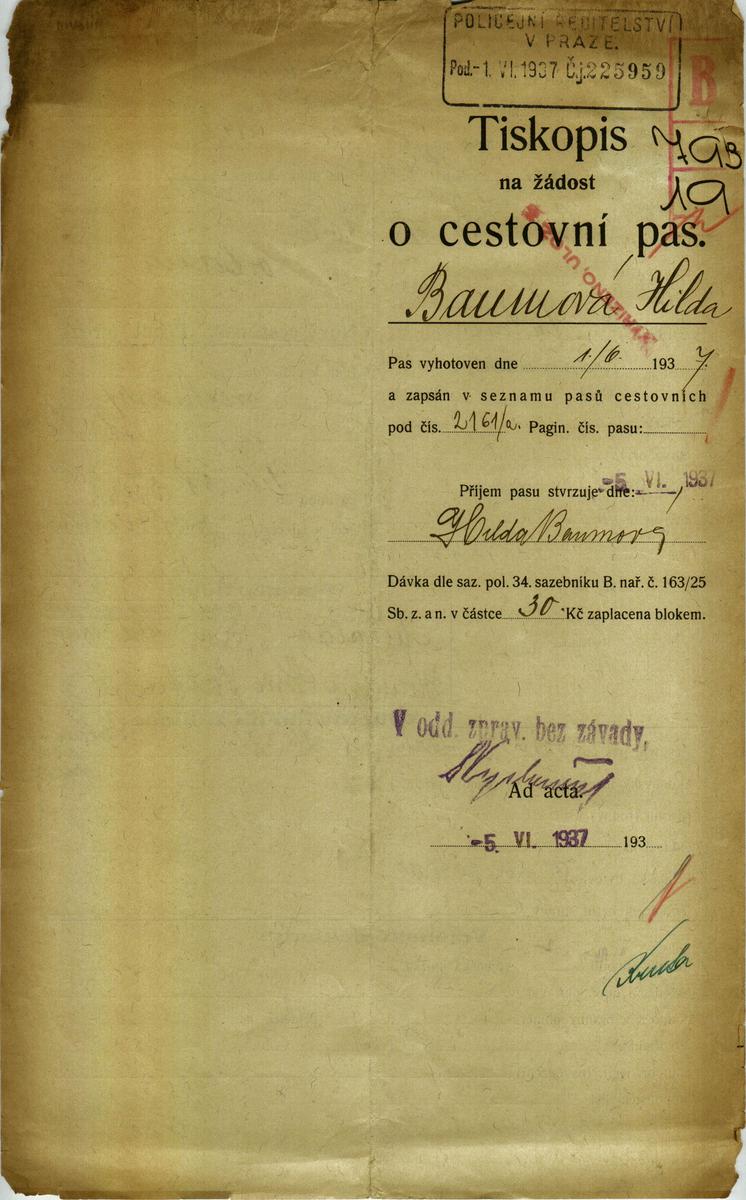 POLICEJNÍ ŘEDITELSTVÍ
V PRAZE.
Pod.-1. VI. 1937 Č.j. 225959
B
793
19
Tiskopis
na žádost
o cestovní pas.
Baumová Hilda
Pas vyhotoven dne 1./6. 1937.
a zapsán v seznamu pasů cestovních
pod čís. 2161/a. Pagin. čís. pasu:
Příjem pasu stvrzuje dne: -5. VI. 1937
Hilda Baumová
Dávka dle saz. pol. 34. sazebníku B. nař. č. 163/25
Sb. z. a n. v částce 30 Kč zaplacena blokem.
V odd. zprav. bez závady,
Ad acta.
-5. VI. 1937 193